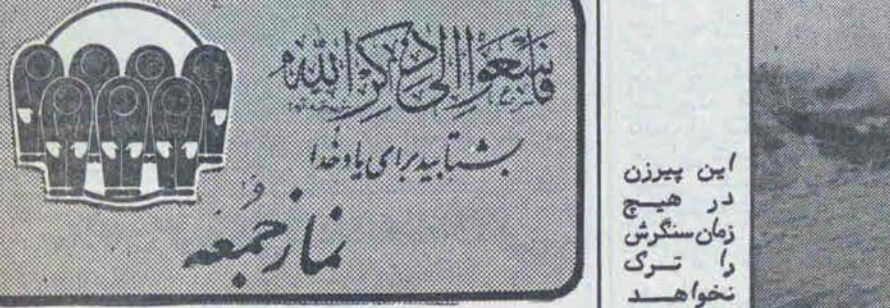 فَاسْعَوْا إِلَىٰ ذِكْرِ اللَّهِ
بشتابید برای یاد خدا
نماز جمعه
این پیرزن
در هیچ
زمان سنگرش
را ترک
نخواهد